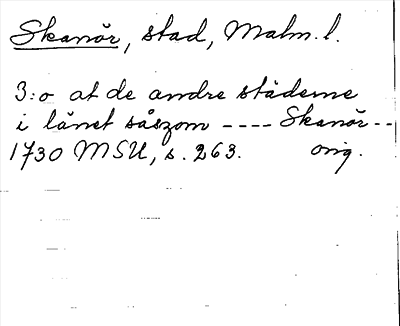 Skanör, stad, Malm. l.
3:o at de andre städerne
i länet såszom ---- Skanör --
1730 MSU, s. 263. orig.